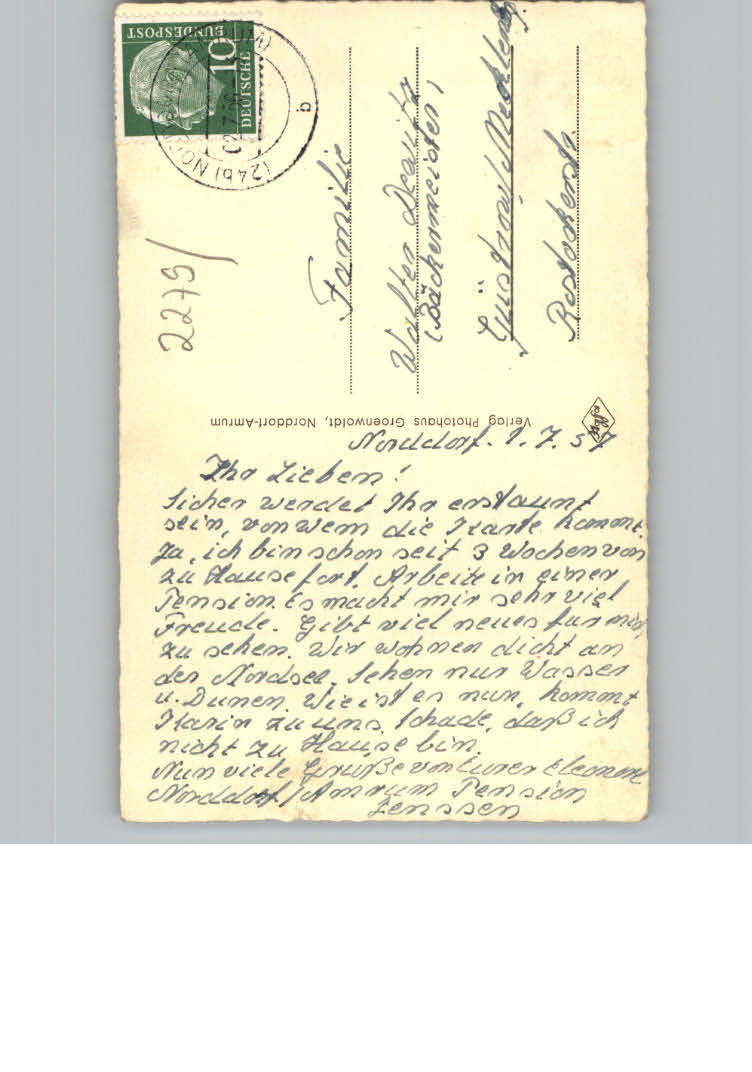 Norddorf. 1.7.57
Ihr Lieben!
Sicher werdet Ihr erstaunt
sein, von wem die Karte kommt.
Ja, ich bin schon seit 3 Wochen von
zu Hause fort. Arbeite in einer
Pension. Es macht mir sehr viel
Freude. Gibt viel neues für mich
zu sehen. Wir wohnen dicht an
der Nordsee. Sehen nur Wasser
u. Dünen. Wie ist es nun, kommt
Karin zu uns. Schade, daß ich
nicht zu Hause bin.
Nun viele Grüße von Eurer Eleonore
Norddorf/Amrum Pension
Jenssen
Verlag Photohaus Groenwoldt, Norddorf-Amrum
Familie
Walter
(Bäckermeister)
Güstrow/Mecklenbg.
Rostockerstr.
2279/
DEUTSCHE
BUNDESPOST
10
(24b) NORDDORF (AMRUM)
b